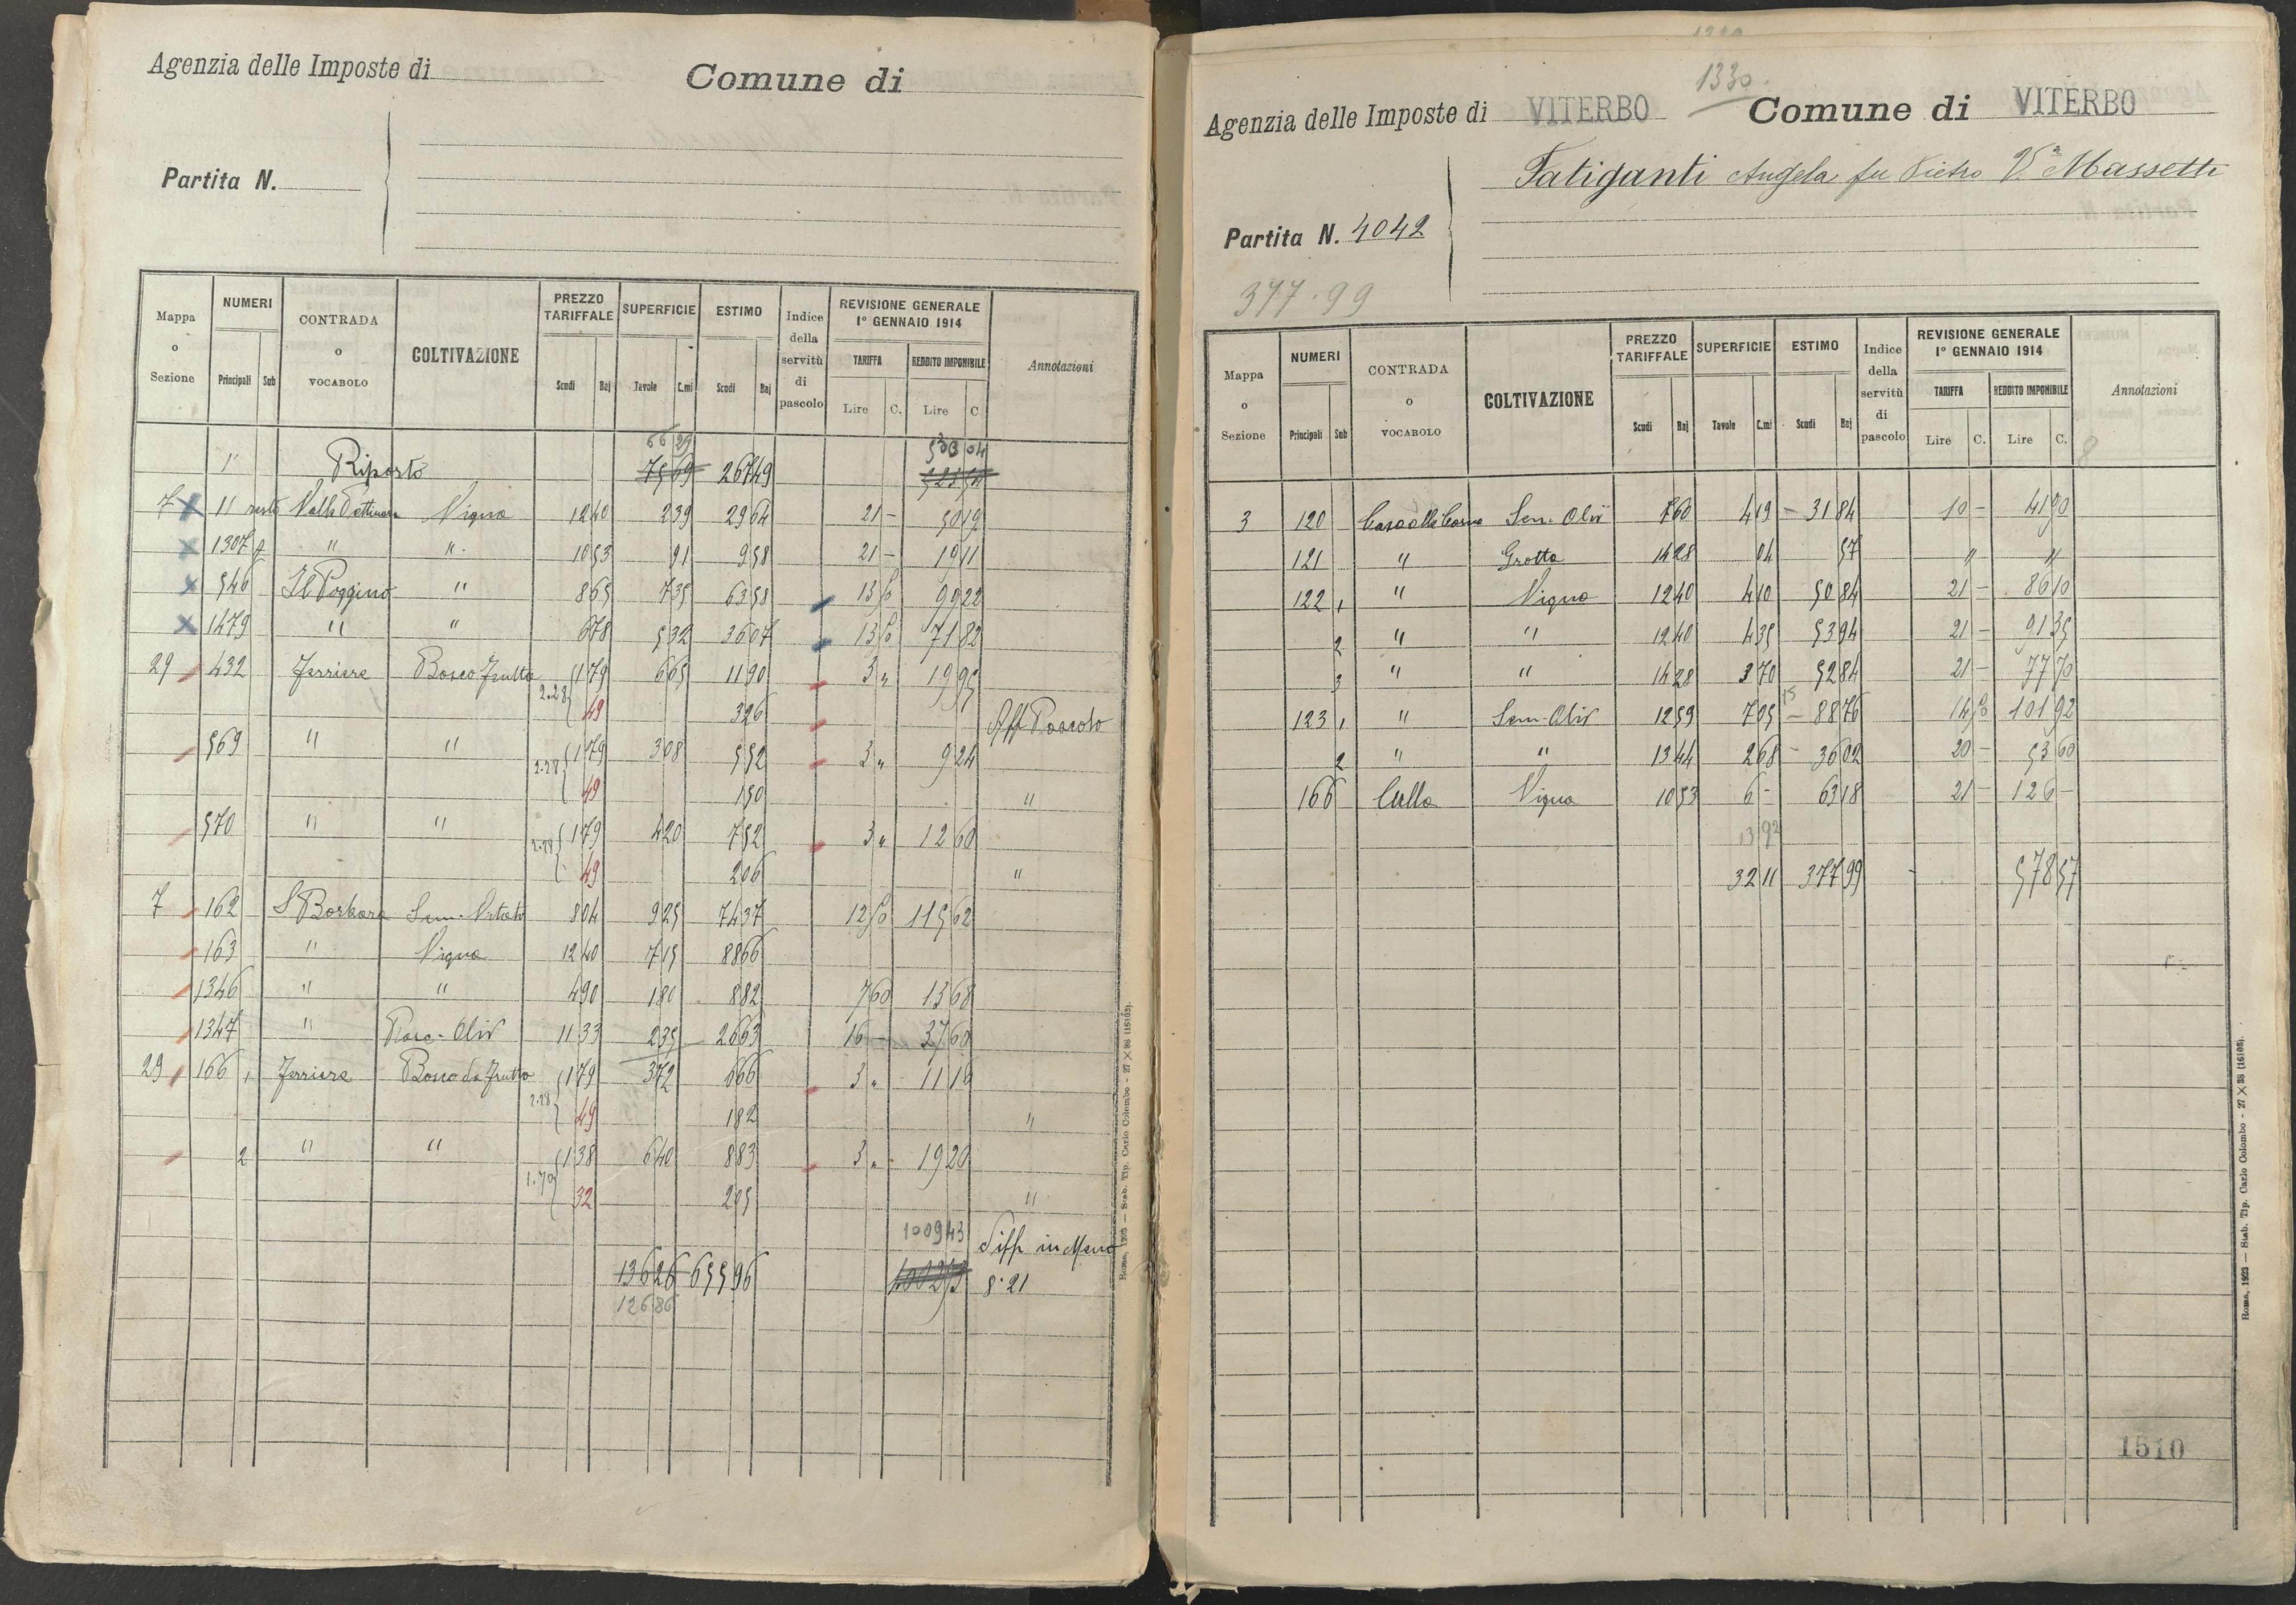 Agenzia delle Imposte di
Comune di
Partita N.
Mappa o Sezione
NUMERI
Principali
Sub
CONTRADA o VOCABOLO
COLTIVAZIONE
PREZZO TARIFFALE
Scudi
Baj
SUPERFICIE
Tavole
C.mi
ESTIMO
Scudi
Baj
Indice della servitù di pascolo
REVISIONE GENERALE 1º GENNAIO 1914
TARIFFA
Lire
C.
REDDITO IMPONIBILE
Lire
C.
Annotazioni
66 29 533 04
1" Riporto 75 69 267 49
7 11 resto Valle Vigna 12 40 2 39 29 64 21 - 50 19
1307 " " 10 53 91 9 58 21 - 19 11
546 Il Poggino " 8 65 7 35 63 58 13 50 99 22
1479 " " 6 78 5 32 36 07 13 50 71 82
29 432 Ferriera Bosco Frutto 1 79 6 65 11 90 3 " 19 95
2.28 49 3 26 Aff Pascolo
569 " " 1 79 3 08 5 52 3 " 9 24
2.28 49 1 50 "
570 " " 1 79 4 20 7 52 3 " 12 60
2.28 49 2 06 "
7 162 S Barbara Sem. Vitato 8 04 9 25 74 37 12 50 115 62
163 " Vigna 12 40 7 15 88 66
1346 " " 4 90 1 80 8 82 7 60 13 68
1347 " Pasc. Oliv 11 33 2 35 26 63 16 - 37 60
29 166 1 Ferriera Bosco da Frutto 1 79 3 72 6 66 3 " 11 16
2.28 49 1 82 "
2 " " 1 38 6 40 8 83 3 " 19 20
1.70 32 2 05 "
1009 43 Diff in Meno
136 26 655 96 8.21
126 86
Roma, 1923 — Stab. Tip. Carlo Colombo - 27 X 38 (16105).
1330
Agenzia delle Imposte di VITERBO Comune di VITERBO
Fatiganti Angela fu Pietro V.ª Massetti
Partita N. 4042
377.99
Mappa o Sezione
NUMERI
Principali
Sub
CONTRADA o VOCABOLO
COLTIVAZIONE
PREZZO TARIFFALE
Scudi
Baj
SUPERFICIE
Tavole
C.mi
ESTIMO
Scudi
Baj
Indice della servitù di pascolo
REVISIONE GENERALE 1º GENNAIO 1914
TARIFFA
Lire
C.
REDDITO IMPONIBILE
Lire
C.
Annotazioni
3 120 Sem. Oliv 7 60 4 19 - 31 84 10 - 41 90
121 " Grotta 14 28 04 57 " "
122 1 " Vigna 12 40 4 10 50 84 21 - 86 10
2 " " 12 40 4 35 53 94 21 - 91 35
3 " " 14 28 3 70 52 84 21 - 77 70
123 1 " Sem. Oliv 12 59 7 05 - 88 76 14 50 101 92
2 " " 13 44 2 68 - 36 02 20 - 53 60
166 Culla Vigna 10 53 6 - 63 18 21 - 126 -
13 92
32 11 377 99 578 57
1510
Roma, 1923 — Stab. Tip. Carlo Colombo - 27 X 38 (16105).